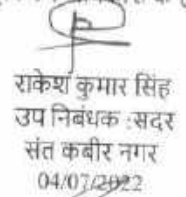 राकेश कुमार सिंह
उप निबंधक :सदर
संत कबीर नगर
04/07/2022